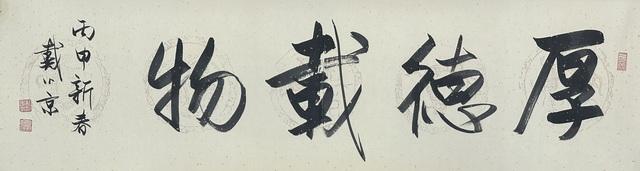 厚德載物
丙申新春
戴小京